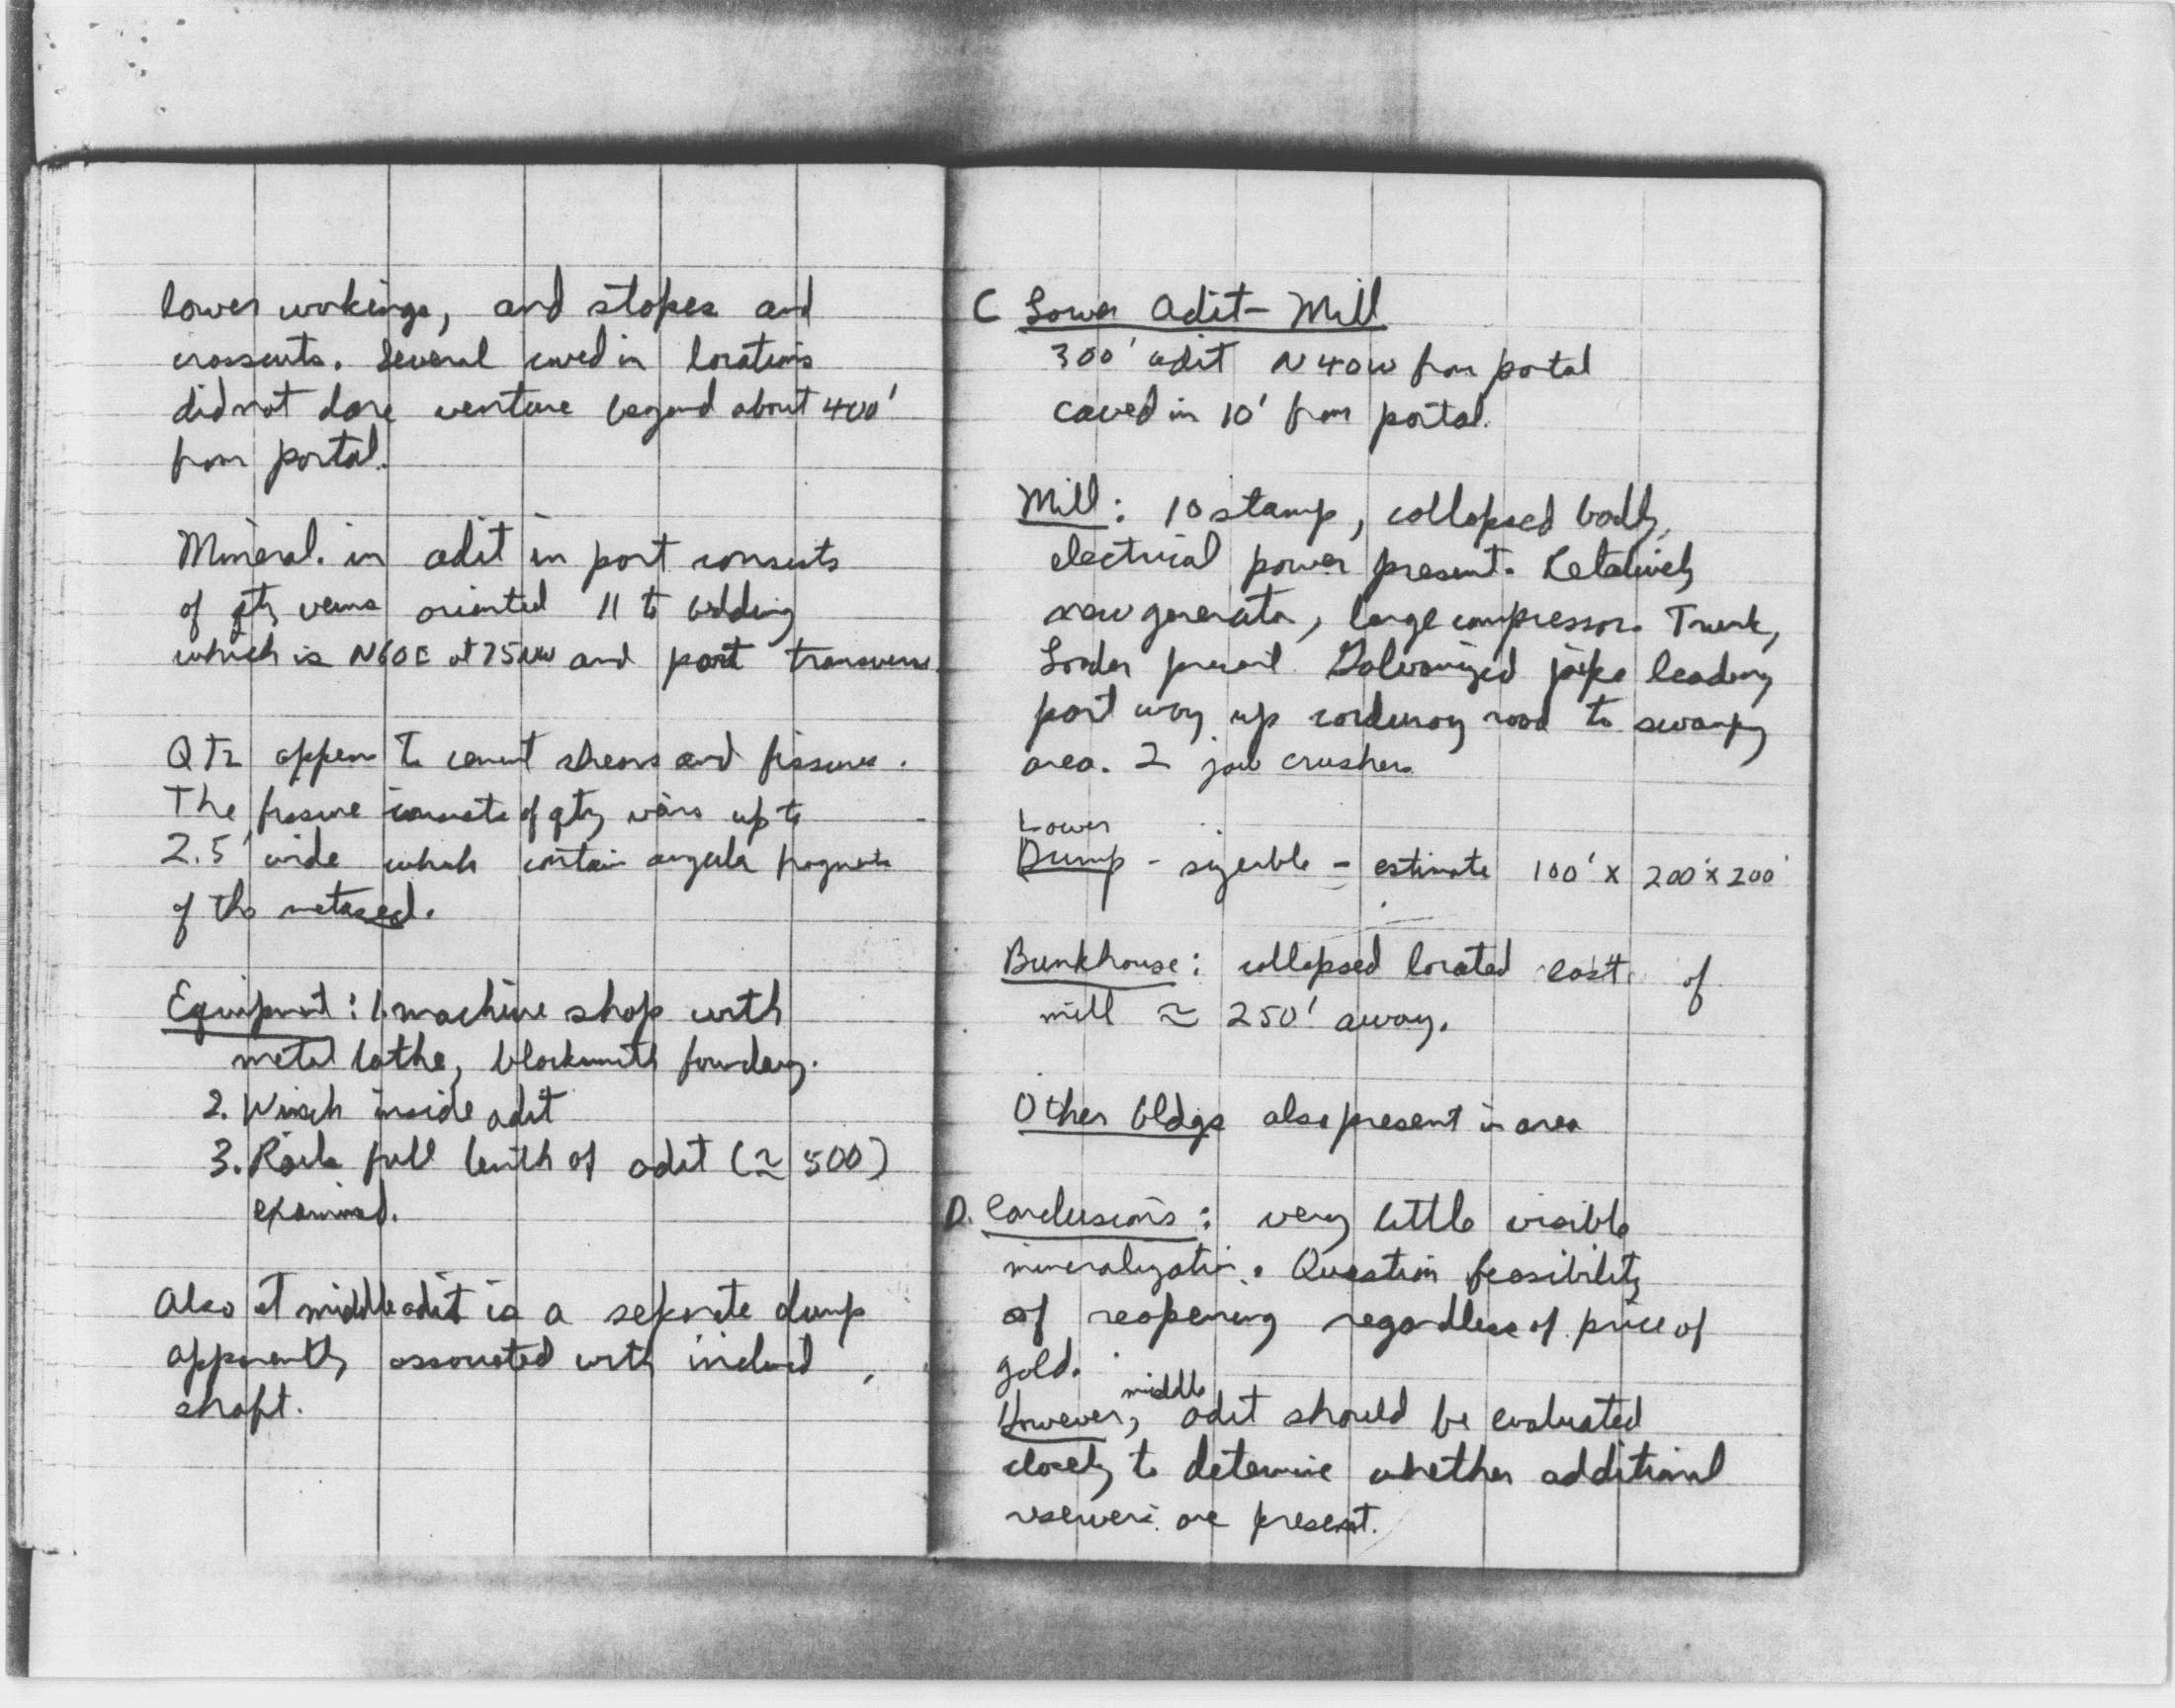 lower workings, and stopes and
crosscuts. Several caved in locations
did not dare venture beyond about 400'
from portal.
Mineral. in adit in part consists
of qtz veins oriented 11 to bedding
which is N60E at 75NW and part transverse.
QTZ appears to cement shears and fissures.
The fissure consists of qtz veins up to
2.5' wide which contain angular fragments
of the metased.
Equipment: 1. machine shop with
metal lathe, blacksmith foundery.
2. Winch inside adit
3. Rails full lenth of adit (≃ 500)
examined.
Also at middle adit is a seperate dump
apparently associated with inclined
shaft.
C Lower Adit - Mill
300' adit N40W from portal
caved in 10' from portal.
Mill: 10 stamp, collapsed badly,
electrical power present. Relatively
new generator, large compressor. Trunk,
Loader present. Galvanized pipe leading
part way up corduroy road to swampy
area. 2 jaw crushers
Lower
Dump - sizeable - estimate 100' x 200' x 200'
Bunkhouse: collapsed located east of
mill ≃ 250' away.
Other bldgs also present in area
D. Conclusions: very little visible
mineralization. Question feasibility
of reopening regardless of price of
gold.
However, middle adit should be evaluated
closely to determine whether additional
reserves are present.